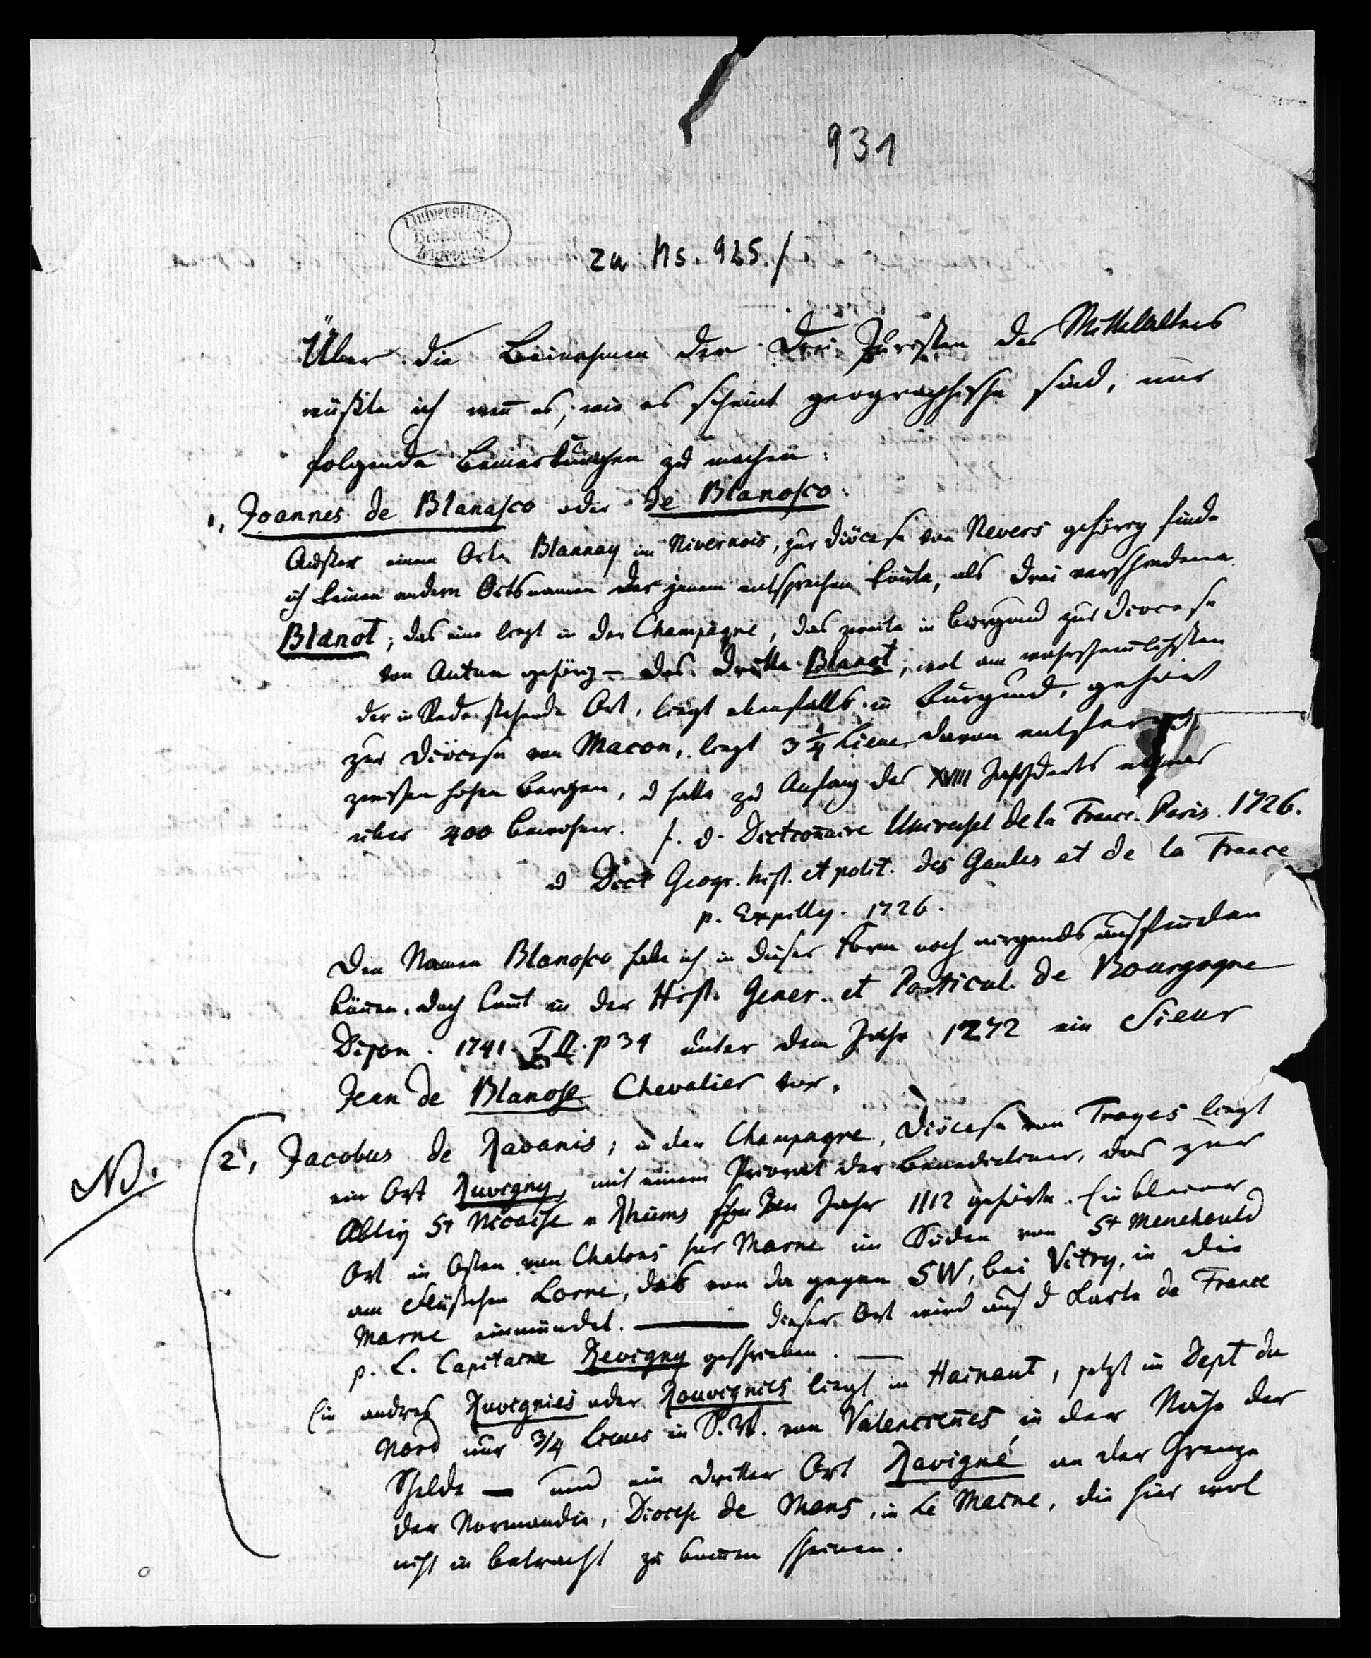 931
Universitäts
Bibliothek
Leipzig
zu Hs. 925./
Über die Beinahmen der drei Juristen des Mittelalters
wüßte ich weñ es, wie es scheint geographische sind, nur
folgende Bemerkungen zu machen:
1, Joannes de Blanasco oder de Blanosco:
Außer einem Orte Blannay im Nivernois, zur Diöcese von Nevers gehörig finde
ich keinen andern Ortsnamen der jenem entsprechen köñte, als drei verschiedene
Blanot; das eine liegt in der Champagne, das zweite in Burgund zur Diocese
von Autun gehörig — das dritte Blanot, wol am wahrscheinlichsten
der in Rede stehende Ort, liegt ebenfalls in Burgund, gehört
zur Diöcese von Macon, liegt 3 1/4 Lieue davon entfernt
zwischen hohen Bergen, u hatte zu Anfang des XVIII Jahrhdts etwas
über 400 Bewohner. s. d. Dictioñaire Universel de la France. Paris. 1726.
u Dict Geogr. hist. et polit. des Gaules et de la France
p. Expilly. 1726.
Den Namen Blanosco habe ich in dieser Form noch nirgends auffinden
köñen, doch kom̃t in der Hist. Gener. et Particul. de Bourgogne
Dijon. 1741. T II. p 34 unter dem Jahr 1272 ein Sieur
Jean de Blanose Chevalier vor.
NB.
2, Jacobus de Ravanis; in der Champagne, Diöcese von Troyes liegt
ein Ort Ruvigny, mit einem Priorat der Benedictiner, das zur
Abtey St Nicaise v Rheims schon im Jahr 1112 gehörte. Ein kleiner
Ort im Osten von Chalons sur Marne im Süden von St Menehould
am Flüßchen Lorne, das von da gegen SW, bei Vitry, in die
Marne einmündet. — dieser Ort wird auf d Karte de France
p. L. Capitaine Revigny geschrieben. —
Ein andres Ruvignies oder Rouvignies liegt in Hainaut, jetzt im Dept du
Nord nur 3/4 Lieues in S.W. von Valencieñes, in der Nähe der
Schelde — und ein dritter Ort Ravigné an der Grenze
der Normandie, Diocese de Mans, in Le Maine, die hier wol
nicht in Betracht zu kom̃en scheinen.